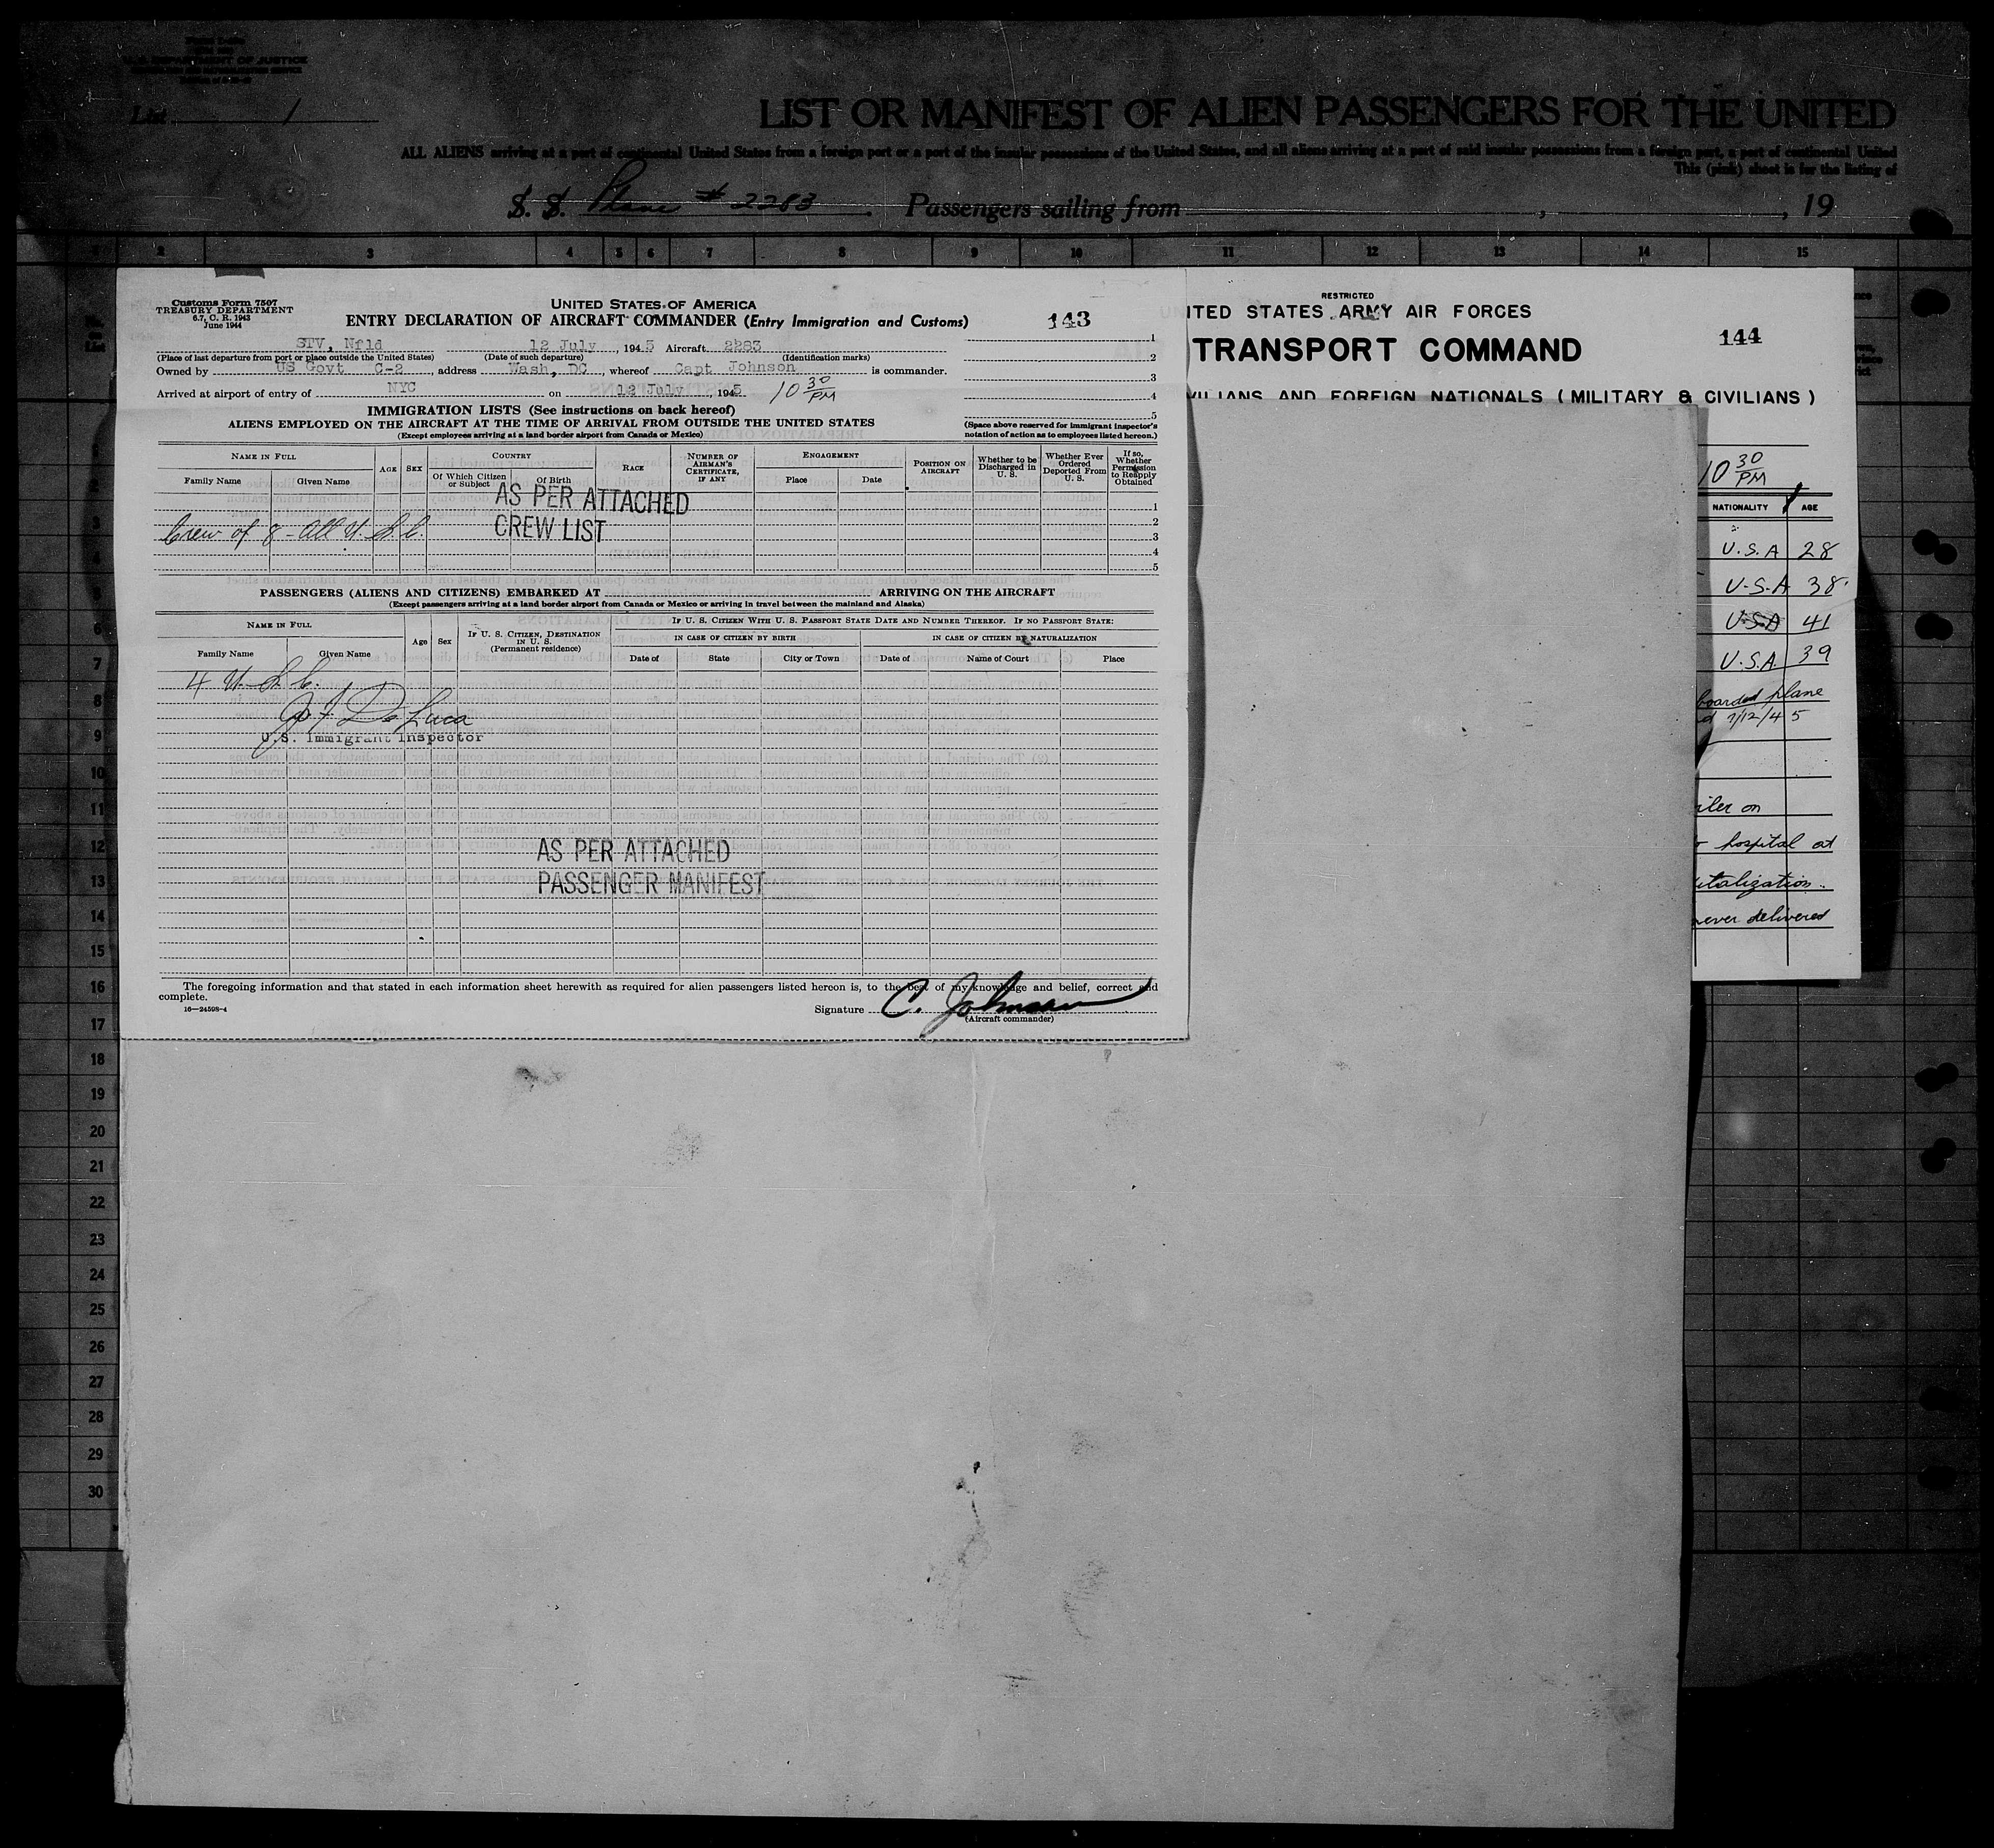 U. S. DEPARTMENT OF JUSTICE
List 1
LIST OR MANIFEST OF ALIEN PASSENGERS FOR THE UNITED
ALL ALIENS arriving at a port of continental United States from a foreign port or a port of the insular possessions of the United States, and all aliens arriving at a port of said insular possessions from a foreign port, a port of continental United
This (pink) sheet is for the listing of
S. S. Plane # 2283 . Passengers sailing from , , 19
2 3 4 5 6 7 8 9 10 11 12 13 14 15
Customs Form 7507
TREASURY DEPARTMENT
6.7, C. R. 1943
June 1944
UNITED STATES OF AMERICA
ENTRY DECLARATION OF AIRCRAFT COMMANDER (Entry Immigration and Customs)
143
STV, Nfld 12 July, 1945 Aircraft 2283
(Place of last departure from port or place outside the United States) (Date of such departure) (Identification marks)
Owned by US Govt C-2, address Wash, DC, whereof Capt Johnson is commander.
Arrived at airport of entry of NYC on 12 July, 1945 10 30 PM
1
2
3
4
5
(Space above reserved for immigrant inspector's
notation of action as to employees listed hereon.)
IMMIGRATION LISTS (See instructions on back hereof)
ALIENS EMPLOYED ON THE AIRCRAFT AT THE TIME OF ARRIVAL FROM OUTSIDE THE UNITED STATES
(Except employees arriving at a land border airport from Canada or Mexico)
NAME IN FULL
Family Name Given Name
AGE SEX
COUNTRY
Of Which Citizen or Subject
Of Birth
RACE
NUMBER OF AIRMAN'S CERTIFICATE, IF ANY
ENGAGEMENT
Place Date
POSITION ON AIRCRAFT
Whether to be Discharged in U. S.
Whether Ever Ordered Deported From U. S.
If so, Whether Permission to Reapply Obtained
AS PER ATTACHED
CREW LIST
Crew of 8 - All U.S.C.
1
2
3
4
5
PASSENGERS (ALIENS AND CITIZENS) EMBARKED AT ARRIVING ON THE AIRCRAFT
(Except passengers arriving at a land border airport from Canada or Mexico or arriving in travel between the mainland and Alaska)
NAME IN FULL
Family Name Given Name
Age Sex
IF U. S. CITIZEN, DESTINATION IN U. S.
(Permanent residence)
IF U. S. CITIZEN WITH U. S. PASSPORT STATE DATE AND NUMBER THEREOF. IF NO PASSPORT STATE:
IN CASE OF CITIZEN BY BIRTH IN CASE OF CITIZEN BY NATURALIZATION
Date of State City or Town Date of Name of Court Place
4 U.S.C.
J. De Luca
U.S. Immigrant Inspector
AS PER ATTACHED
PASSENGER MANIFEST
The foregoing information and that stated in each information sheet herewith as required for alien passengers listed hereon is, to the best of my knowledge and belief, correct and
complete.
16—24598-4
Signature C. Johnson
(Aircraft commander)
RESTRICTED
UNITED STATES ARMY AIR FORCES
TRANSPORT COMMAND
144
VILIANS AND FOREIGN NATIONALS (MILITARY & CIVILIANS)
10 30 PM
NATIONALITY AGE
U.S.A 28
U.S.A 38
USA 41
U.S.A. 39
boarded plane
7/12/45
on
hospital at
never delivered
6
7
8
9
10
11
12
13
14
15
16
17
18
19
20
21
22
23
24
25
26
27
28
29
30